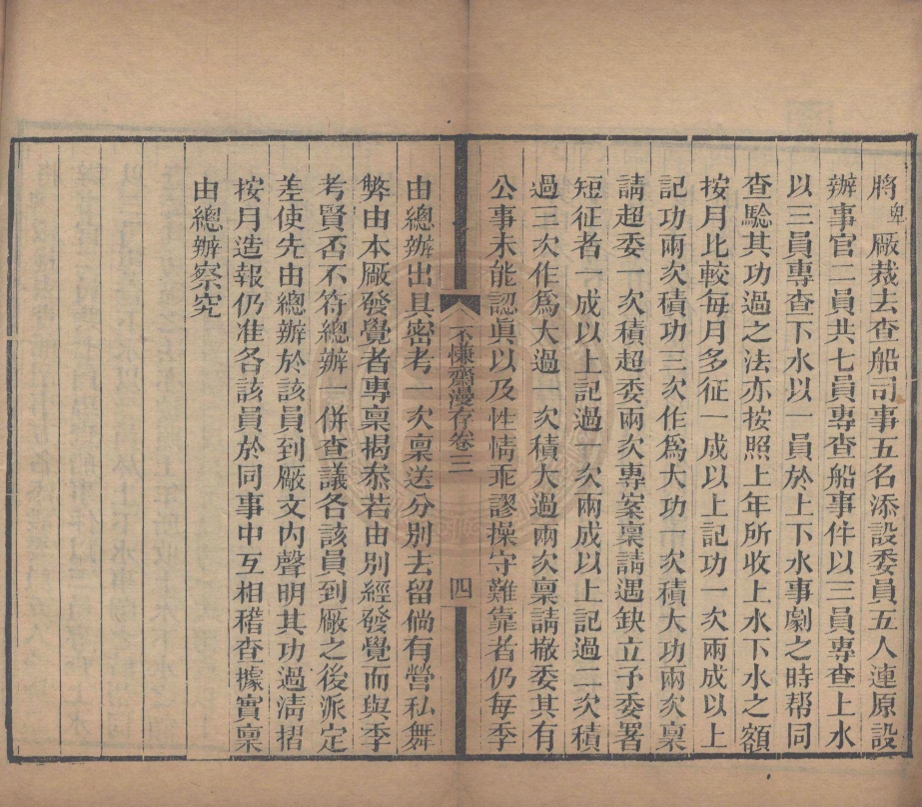 將卑廠裁去查船司事五名添設委員五人連原設
辦事官二員共七員專查船事件以三員專查上水
以三員專查下水以一員於上下水事劇之時帮同
查驗其功過之法亦按照上年所收上水下水之額
按月比較每月多征一成以上記功一次兩成以上
記功兩次積功三次作爲大功一次積大功兩次稟
請超委一次積超委兩次專案稟請遇缺立予委署
短征者一成以上記過一次兩成以上記過二次積
過三次作爲大過一次積大過兩次稟請撤委其有
公事未能認眞以及性情乖謬操守難靠者仍每季
不慊齋漫存卷三
四
由總辦出具密考一次稟送分別去留倘有營私舞
弊由本廠發覺者專稟揭叅若由別經發覺而與季
考賢否不符總辦一併查議各該員到廠之後派定
差使先由總辦於該員到廠文內聲明其功過淸摺
按月造報仍准各該員於同事中互相稽查據實稟
由總辦察究